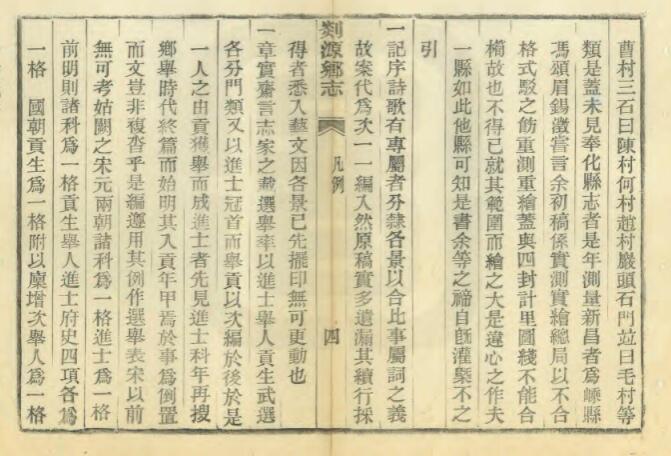 曹村三石曰陳村何村趙村嚴頭石門竝曰毛村等
類是蓋未見奉化縣志者是年測量新昌者爲嵊縣
馮頌眉錫澂嘗言余初稿係實測實繪總局以不合
格式駁之飭重測重繪蓋與四封計里圖綫不能合
櫥故也不得已就其範圍而繪之大是違心之作夫
一縣如此他縣可知是書余等之禘自旣灌槩不之
引
一記序詩歌有專屬者分隸各景以合比事屬詞之義
故案代爲次一一編入然原稿實多遺漏其續行採
剡源鄉志
凡例
四
得者悉入藝文因各景已先擺印無可更動也
一章實齋言志家之載選舉率以進士舉人貢生武選
各分門類又以進士冠首而舉貢以次編於後於是
一人之由貢獲舉而成進士者先見進士科年再搜
鄉舉時代終篇而始明其入貢年甲焉於事爲倒置
而文豈非複沓乎是編遵用其例作選舉表宋以前
無可考姑闕之宋元兩朝諸科爲一格進士爲一格
前明則諸科爲一格貢生舉人進士府史四項各爲
一格 國朝貢生爲一格附以廩增次舉人爲一格